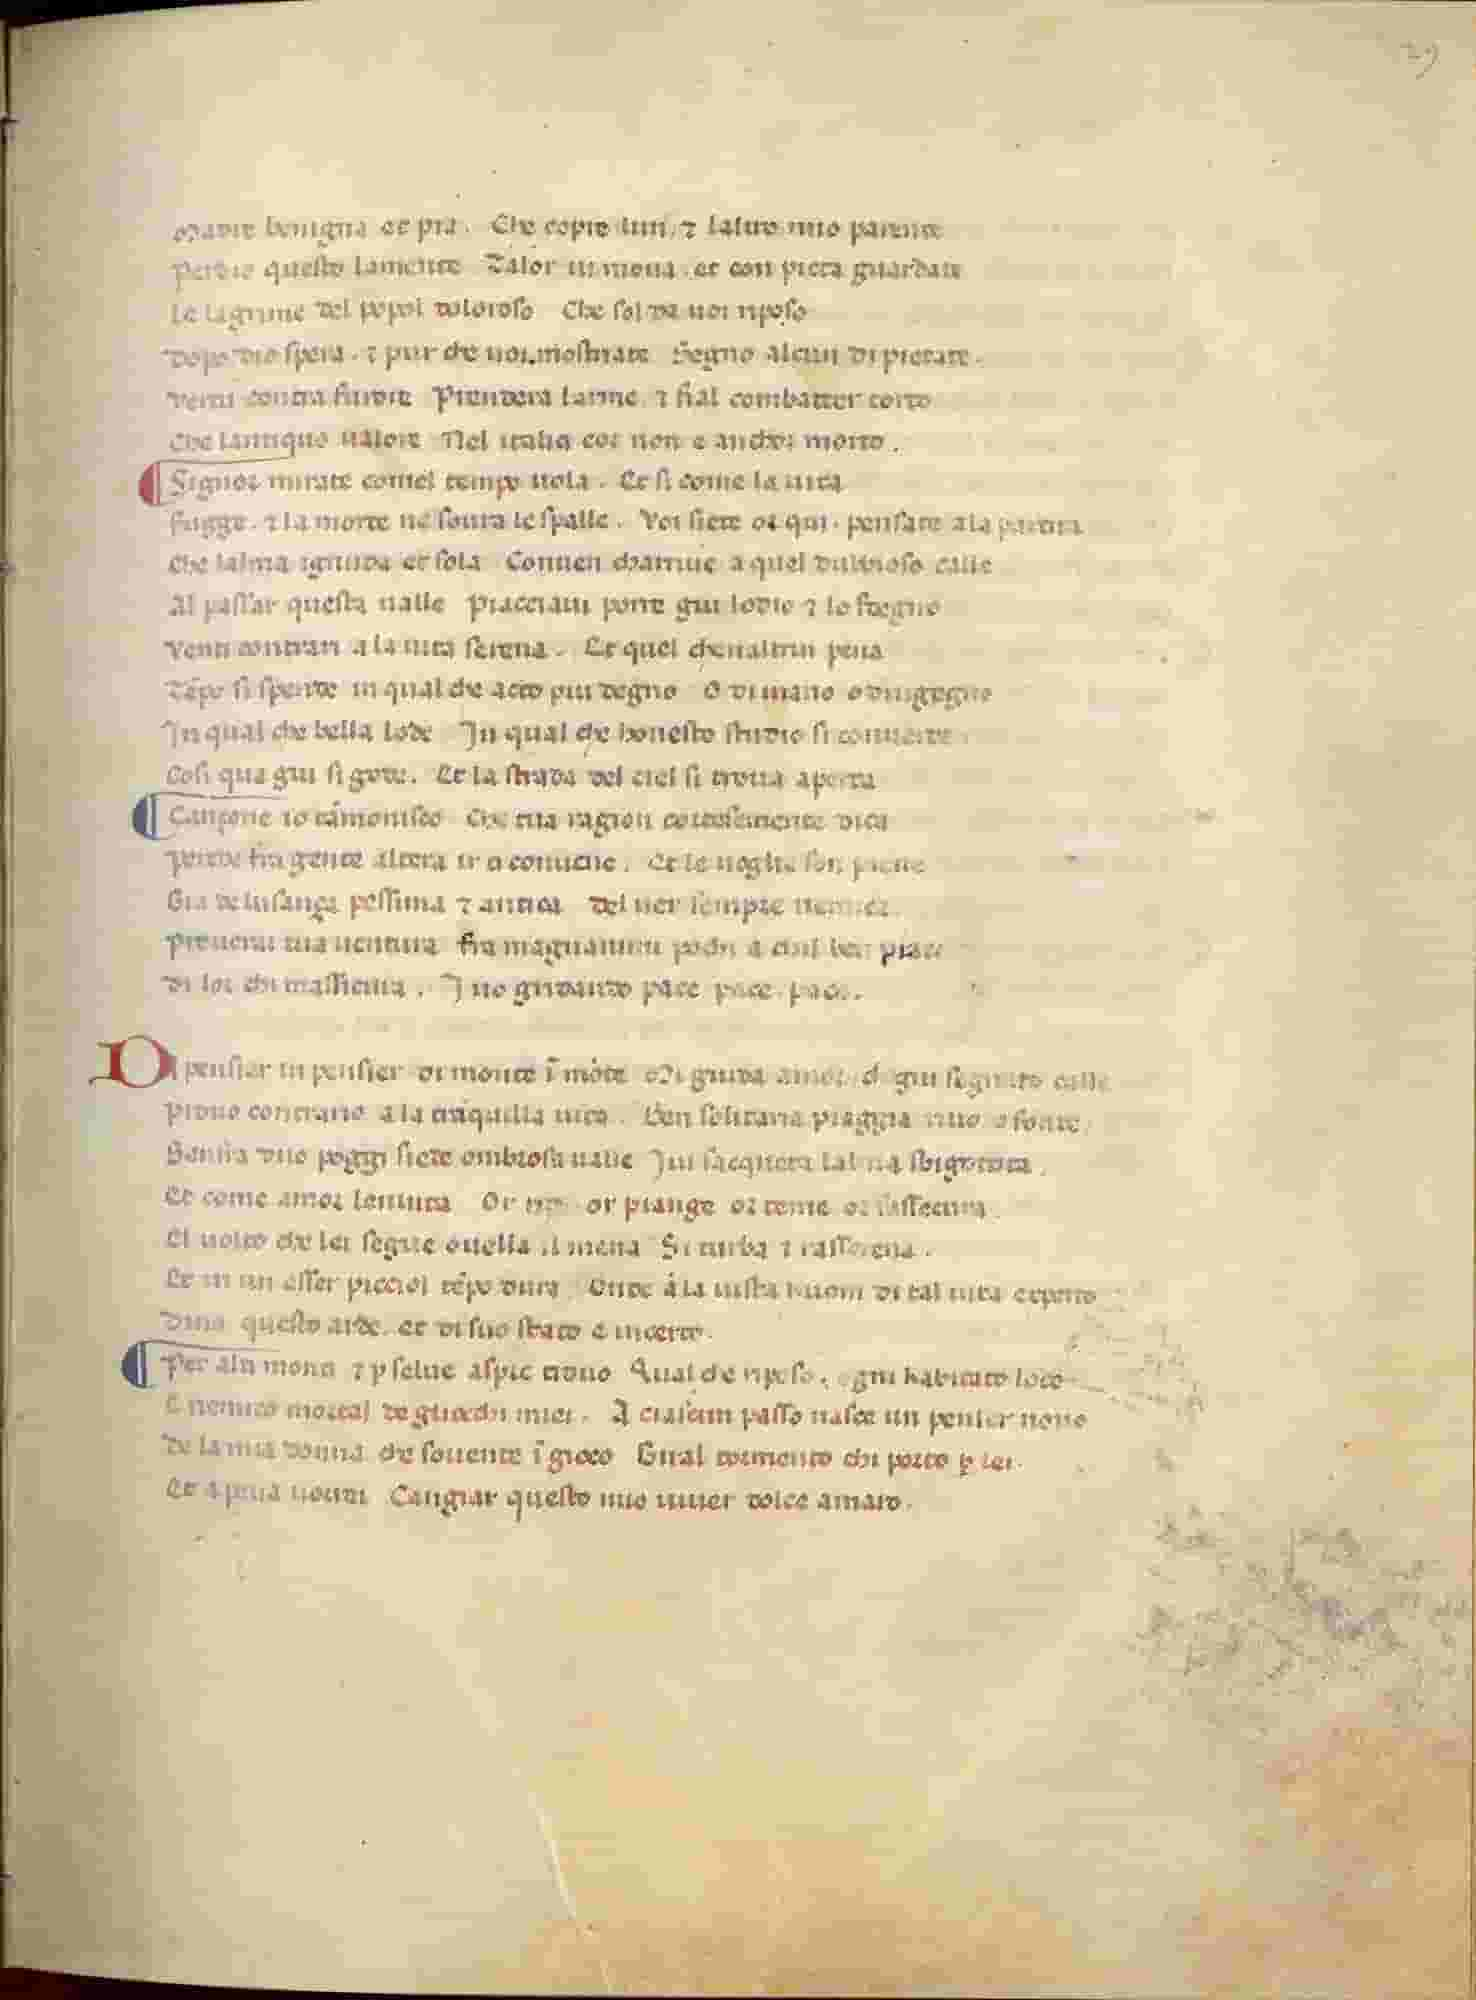 29
Madre benigna et pia. Che copre lun, ⁊ laltro mio parente
Perdio questo lamente Talor ui moua. et con pieta guardate
Le lagrime del popol doloroso Che sol da uoi riposo
Dopo dio spera. ⁊ pur che uoi mostriate Segno alcun di pietate.
Vertu contra furore Prendera larme. ⁊ fial combatter corto
Che lantiquo ualore Nel italici cor non e anchor morto.
Signor mirate comel tempo uola. Et si come la uita
Fugge. ⁊ la morte ne soura le spalle. Voi siete or qui. pensate a la partita
Che lalma ignuda et sola Conuen charriue a quel dubioso calle
Al passar questa ualle Piacciaui porre giu lodio ⁊ lo sdegno
Venti contrari a la uita serena. Et quel chenaltrui pena
Tẽpo si spende in qual che acto piu degno O di mano o dingegno
In qual che bella lode In qual che honesto studio si conuerta
Cosi qua giu si gode. Et la strada del ciel si troua aperta
Cançone io tãmonisco Che tua ragion cortesemente dica
Perche fra gente altera ir ti conuene. Et le uoglie son piene
Gia de lusança pessima ⁊ antica Del uer sempre nemica.
Prouerai tua uentura fra magnanimi pochi a chil ben piace
Di lor chi massicura. I uo gridando pace pace pace.
Di pensier in pensier di monte ĩ mõte Mi guida amor. chogni segnato calle
Prouo contrario a la trãquilla uita. Sen solitaria piaggia riuo o fonte.
Senfra duo poggi siede ombrosa ualle Iui sacqueta lalma sbigotita.
Et come amor lenuita Or ride or piange or teme or sassecura.
El uolto che lei segue ouella il mena Si turba ⁊ rasserena.
Et in un esser picciol tẽpo dura Onde a la uista huom di tal uita experto
Diria questo arde. et di suo stato e incerto.
Per alti monti ⁊ ꝑ selue aspre trouo Qualche riposo, ogni habitato loco
E nemico mortal degliocchi miei. A ciascun passo nasce un penser nouo
De la mia donna che souente ĩ gioco Gira l tormento chi porto ꝑ lei.
Et a pena uorrei Cangiar questo mio uiuer dolce amaro.